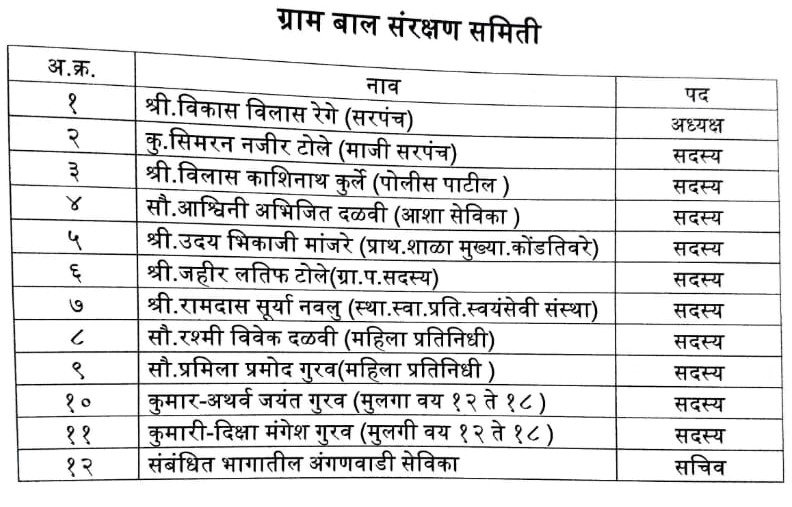 ग्राम बाल संरक्षण समिती
अ.क्र. नाव पद
१ श्री.विकास विलास रेगे (सरपंच) अध्यक्ष
२ कु.सिमरन नजीर टोले (माजी सरपंच) सदस्य
३ श्री.विलास काशिनाथ कुर्ले (पोलीस पाटील ) सदस्य
४ सौ.आश्विनी अभिजित दळवी (आशा सेविका ) सदस्य
५ श्री.उदय भिकाजी मांजरे (प्राथ.शाळा मुख्या.कोंडतिवरे) सदस्य
६ श्री.जहीर लतिफ टोले(ग्रा.प.सदस्य) सदस्य
७ श्री.रामदास सूर्या नवलु (स्था.स्वा.प्रति.स्वयंसेवी संस्था) सदस्य
८ सौ.रश्मी विवेक दळवी (महिला प्रतिनिधी) सदस्य
९ सौ.प्रमिला प्रमोद गुरव(महिला प्रतिनिधी ) सदस्य
१० कुमार-अथर्व जयंत गुरव (मुलगा वय १२ ते १८ ) सदस्य
११ कुमारी-दिक्षा मंगेश गुरव (मुलगी वय १२ ते १८ ) सदस्य
१२ संबंधित भागातील अंगणवाडी सेविका सचिव